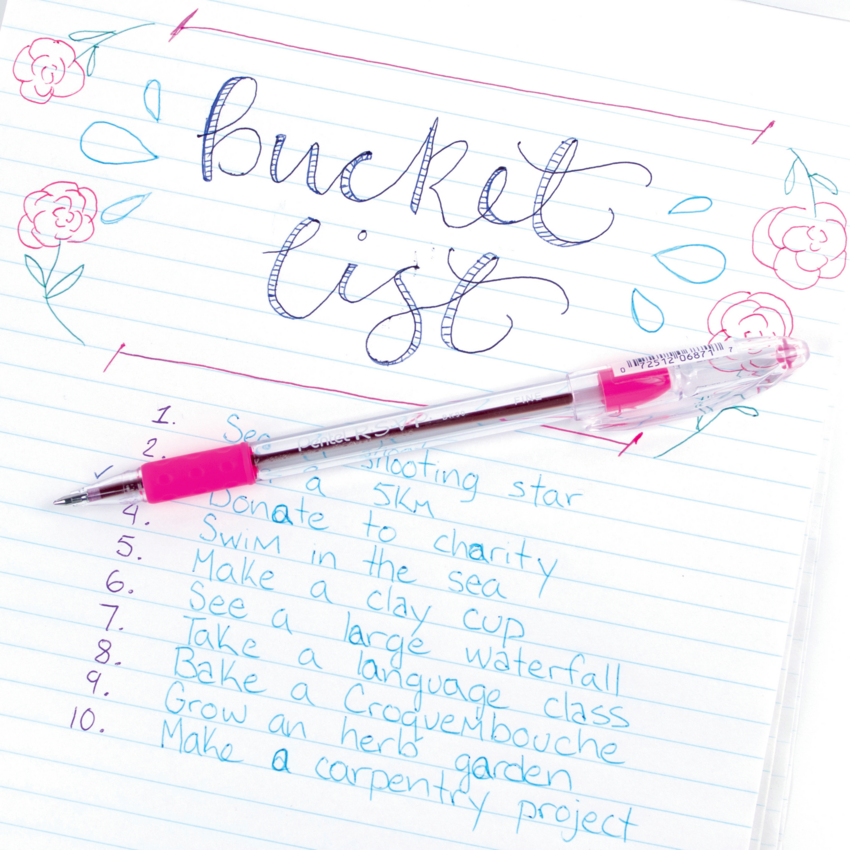 bucket
list
0 72512 06871 7
Pentel
1. See shooting star
2. a 5KM
Donate to charity
4. Swim in the sea
5. Make a clay cup
6. See a large waterfall
7. Take a language class
8. Bake a Croquembouche
9. Grow an herb garden
10. Make a carpentry project